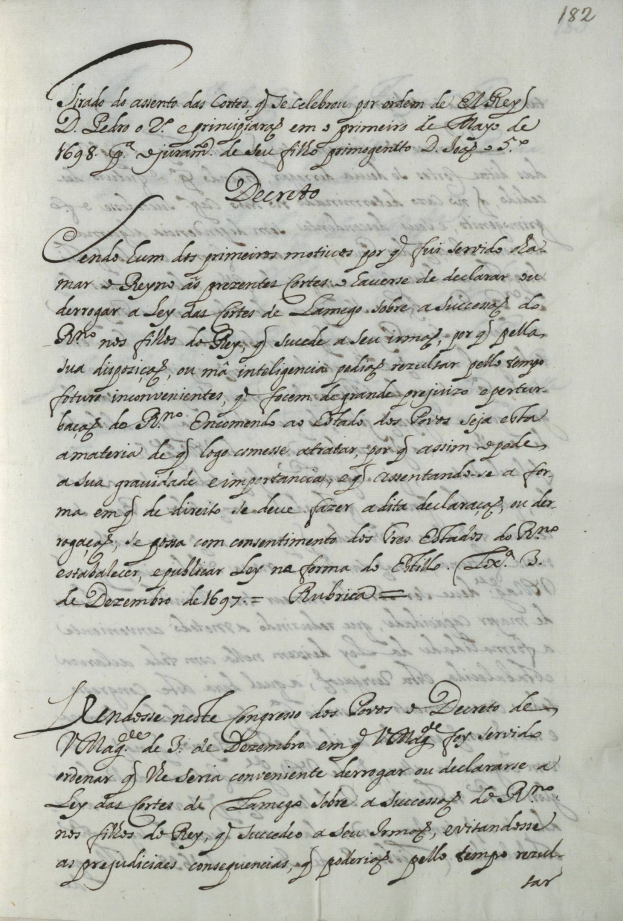 182
Tirado do assento das Cortes, q̃ se celebrou por ordem de El Rey
D. Pedro o 2.º e principiaraõ em o primeiro de Mayo de
1698. p.ª o juram.to de seu filho primogenito D. Joaõ o 5.º
Decreto
Sendo hum dos primeiros motivos por q̃ fui servido cha-
mar o Reyno ás prezentes Cortes o haverse de declarar ou
derrogar a Ley das Cortes de Lamego sobre, a sucessaõ do
R.no nos filhos do Rey, q̃ sucede a seu irmaõ, por q̃ pella
sua dispoziçaõ, ou má inteligencia podiaõ rezultar pello tempo
foturo inconvenientes, q̃ focem de grande prejuizo e pertur-
baçaõ do R.no Encomendo ao Estado dos Povos seja esta
a materia de q̃ logo comesse a tratar, por q̃ assim o pede
a sua gravidade e importancia, e q̃ assentando-se a for-
ma em q̃ de direito se deve fazer a dita declaraçaõ, ou der
rogaçaõ, se possa com consentimento dos Tres Estados do R.no
estabalecer, e publicar Ley na forma do Estillo. Lix.ª 3.
de Dezembro de 1697. = Rubrica =
Rendosse neste Congresso dos Povos o Decreto de
V Mag.de de 3. de Dezembro em q̃ V Mag.de foy servido
ordenar q̃ lhe seria conveniente derrogar ou declararse a
Ley das Cortes de Lamego sobre a successaõ do R.no
nos filhos do Rey, q̃ succedeo a seu Irmaõ, evitandosse
as prejudiciaes consequencias, q̃ poderiaõ pello tempo rezul-
tar